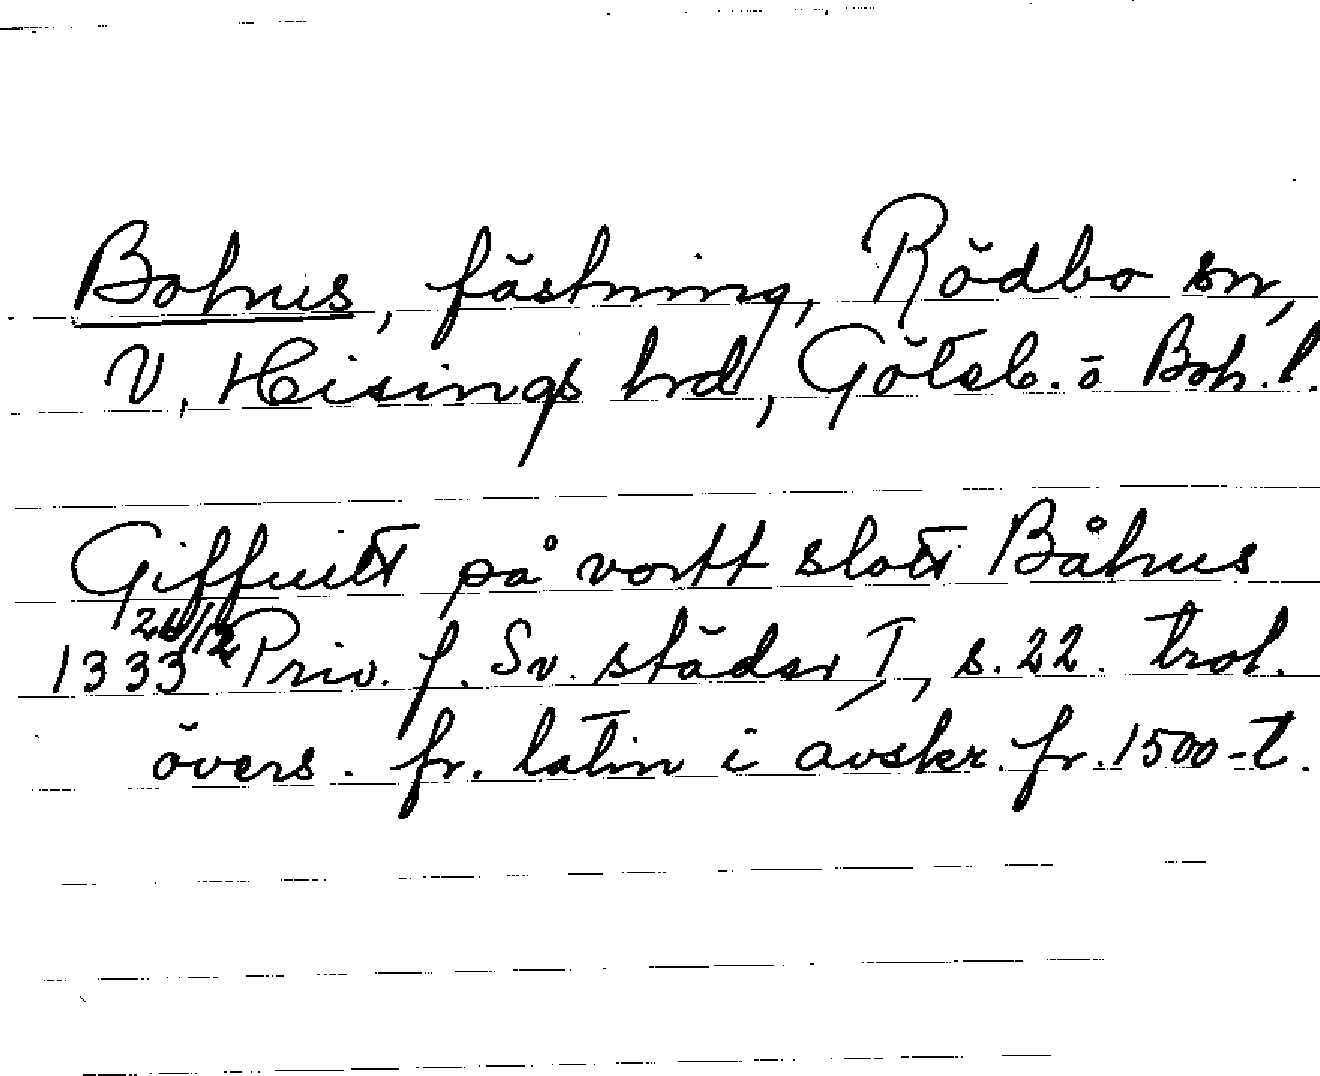 Bohus, fästning, Rödbo sn,
V. Hisings hrd, Göteb. o Boh. l.
Giffuitt på vortt slott Båhus
1333 26/12 Priv. f. Sv. städer I, s. 22. trol.
övers. fr. latin i avskr. fr. 1500-t.